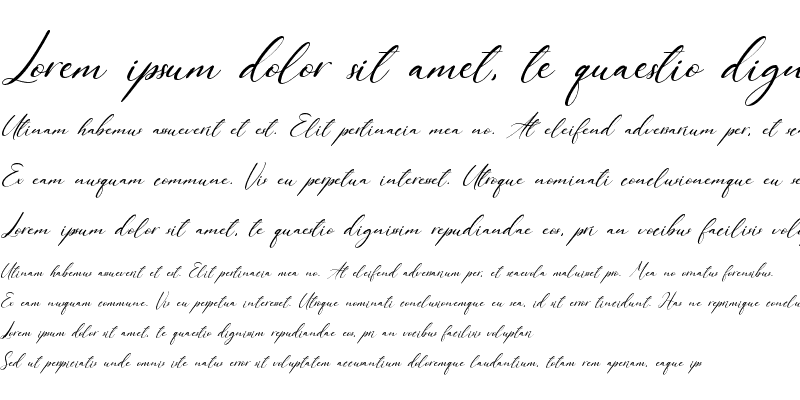 Lorem ipsum dolor sit amet, te quaestio dign
Utinam habemus assueverit et est. Elit pertinacia mea no. At eleifend adversarium per, et sca
Ex eam nusquam commune. Vis eu perpetua interesset. Utroque nominati conclusionemque eu se
Lorem ipsum dolor sit amet, te quaestio dignissim repudiandae eos, pri an vocibus facilisis volup
Utinam habemus assueverit et est. Elit pertinacia mea no. At eleifend adversarium per, et scaevola maluisset pro. Mea no ornatus forensibus.
Ex eam nusquam commune. Vis eu perpetua interesset. Utroque nominati conclusionemque eu sea, id sit error tincidunt. Has ne reprimique conclu
Lorem ipsum dolor sit amet, te quaestio dignissim repudiandae eos, pri an vocibus facilisis voluptari
Sed ut perspiciatis unde omnis iste natus error sit voluptatem accusantium doloremque laudantium, totam rem aperiam, eaque ips